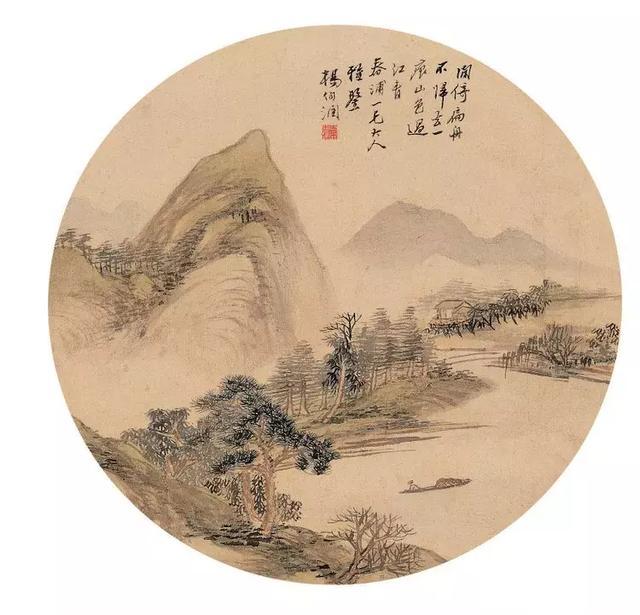 閒倚扁舟
不歸去一
痕山色過
江青
春浦大人
雅鑒
楊伯潤